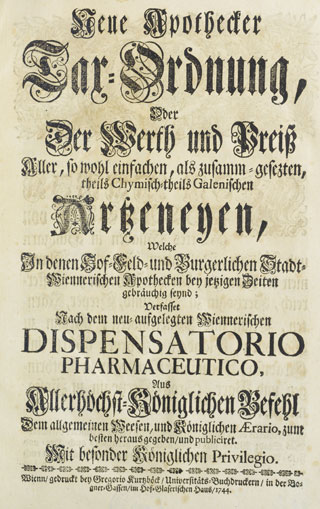 Neue Apothecker
Tax-Ordnung,
Oder
Der Werth und Preiß
Aller, so wohl einfachen, als zusamm-gesezten,
theils Chymisch-theils Galenischen
Artzeneyen,
Welche
In denen Hof-Feld- und Burgerlichen Stadt-
Wiennerischen Apothecken bey jetzigen Zeiten
gebräuchig seynd;
Verfasset
Nach dem neu-aufgelegten Wiennerischen
DISPENSATORIO
PHARMACEUTICO,
Aus
Allerhöchst-Königlichen Befehl
Dem allgemeinen Weesen, und Königlichen Ærario, zum
besten heraus gegeben/ und publiciret.
Mit besonder Königlichen Privilegio.
Wienn, gedruckt bey Gregorio Kurtzböck/ Universitäts-Buchdruckern/ in der Bog-
ner-Gassen/ im Hof-Glaserischen Haus/ 1744.